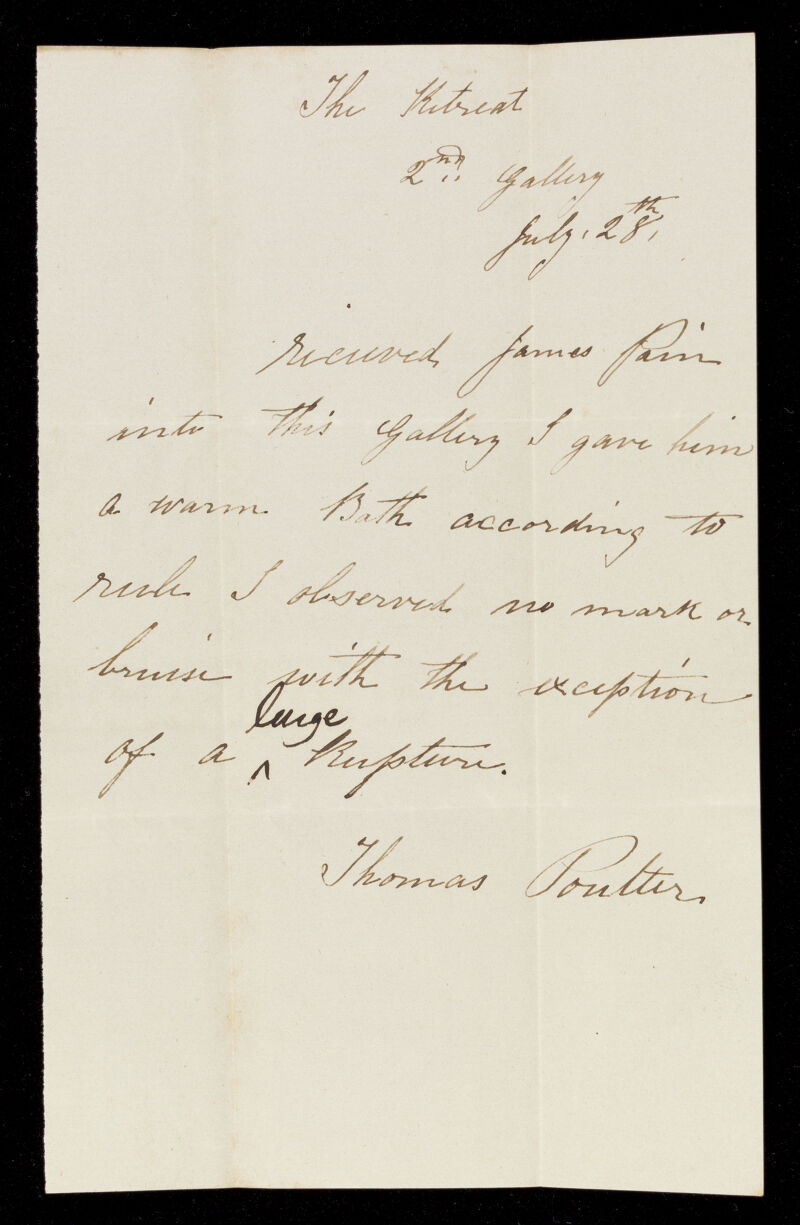 The Retreat
2nd Gallery
July. 28th,
recieved James Pain
into this Gallery I gave him
a warm Bath according to
rule I observed no mark or
bruise with the exception
large
of a ^ Rupture.
Thomas Poulter